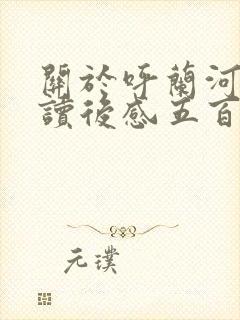 關於呼蘭河
讀後感五百
元璞